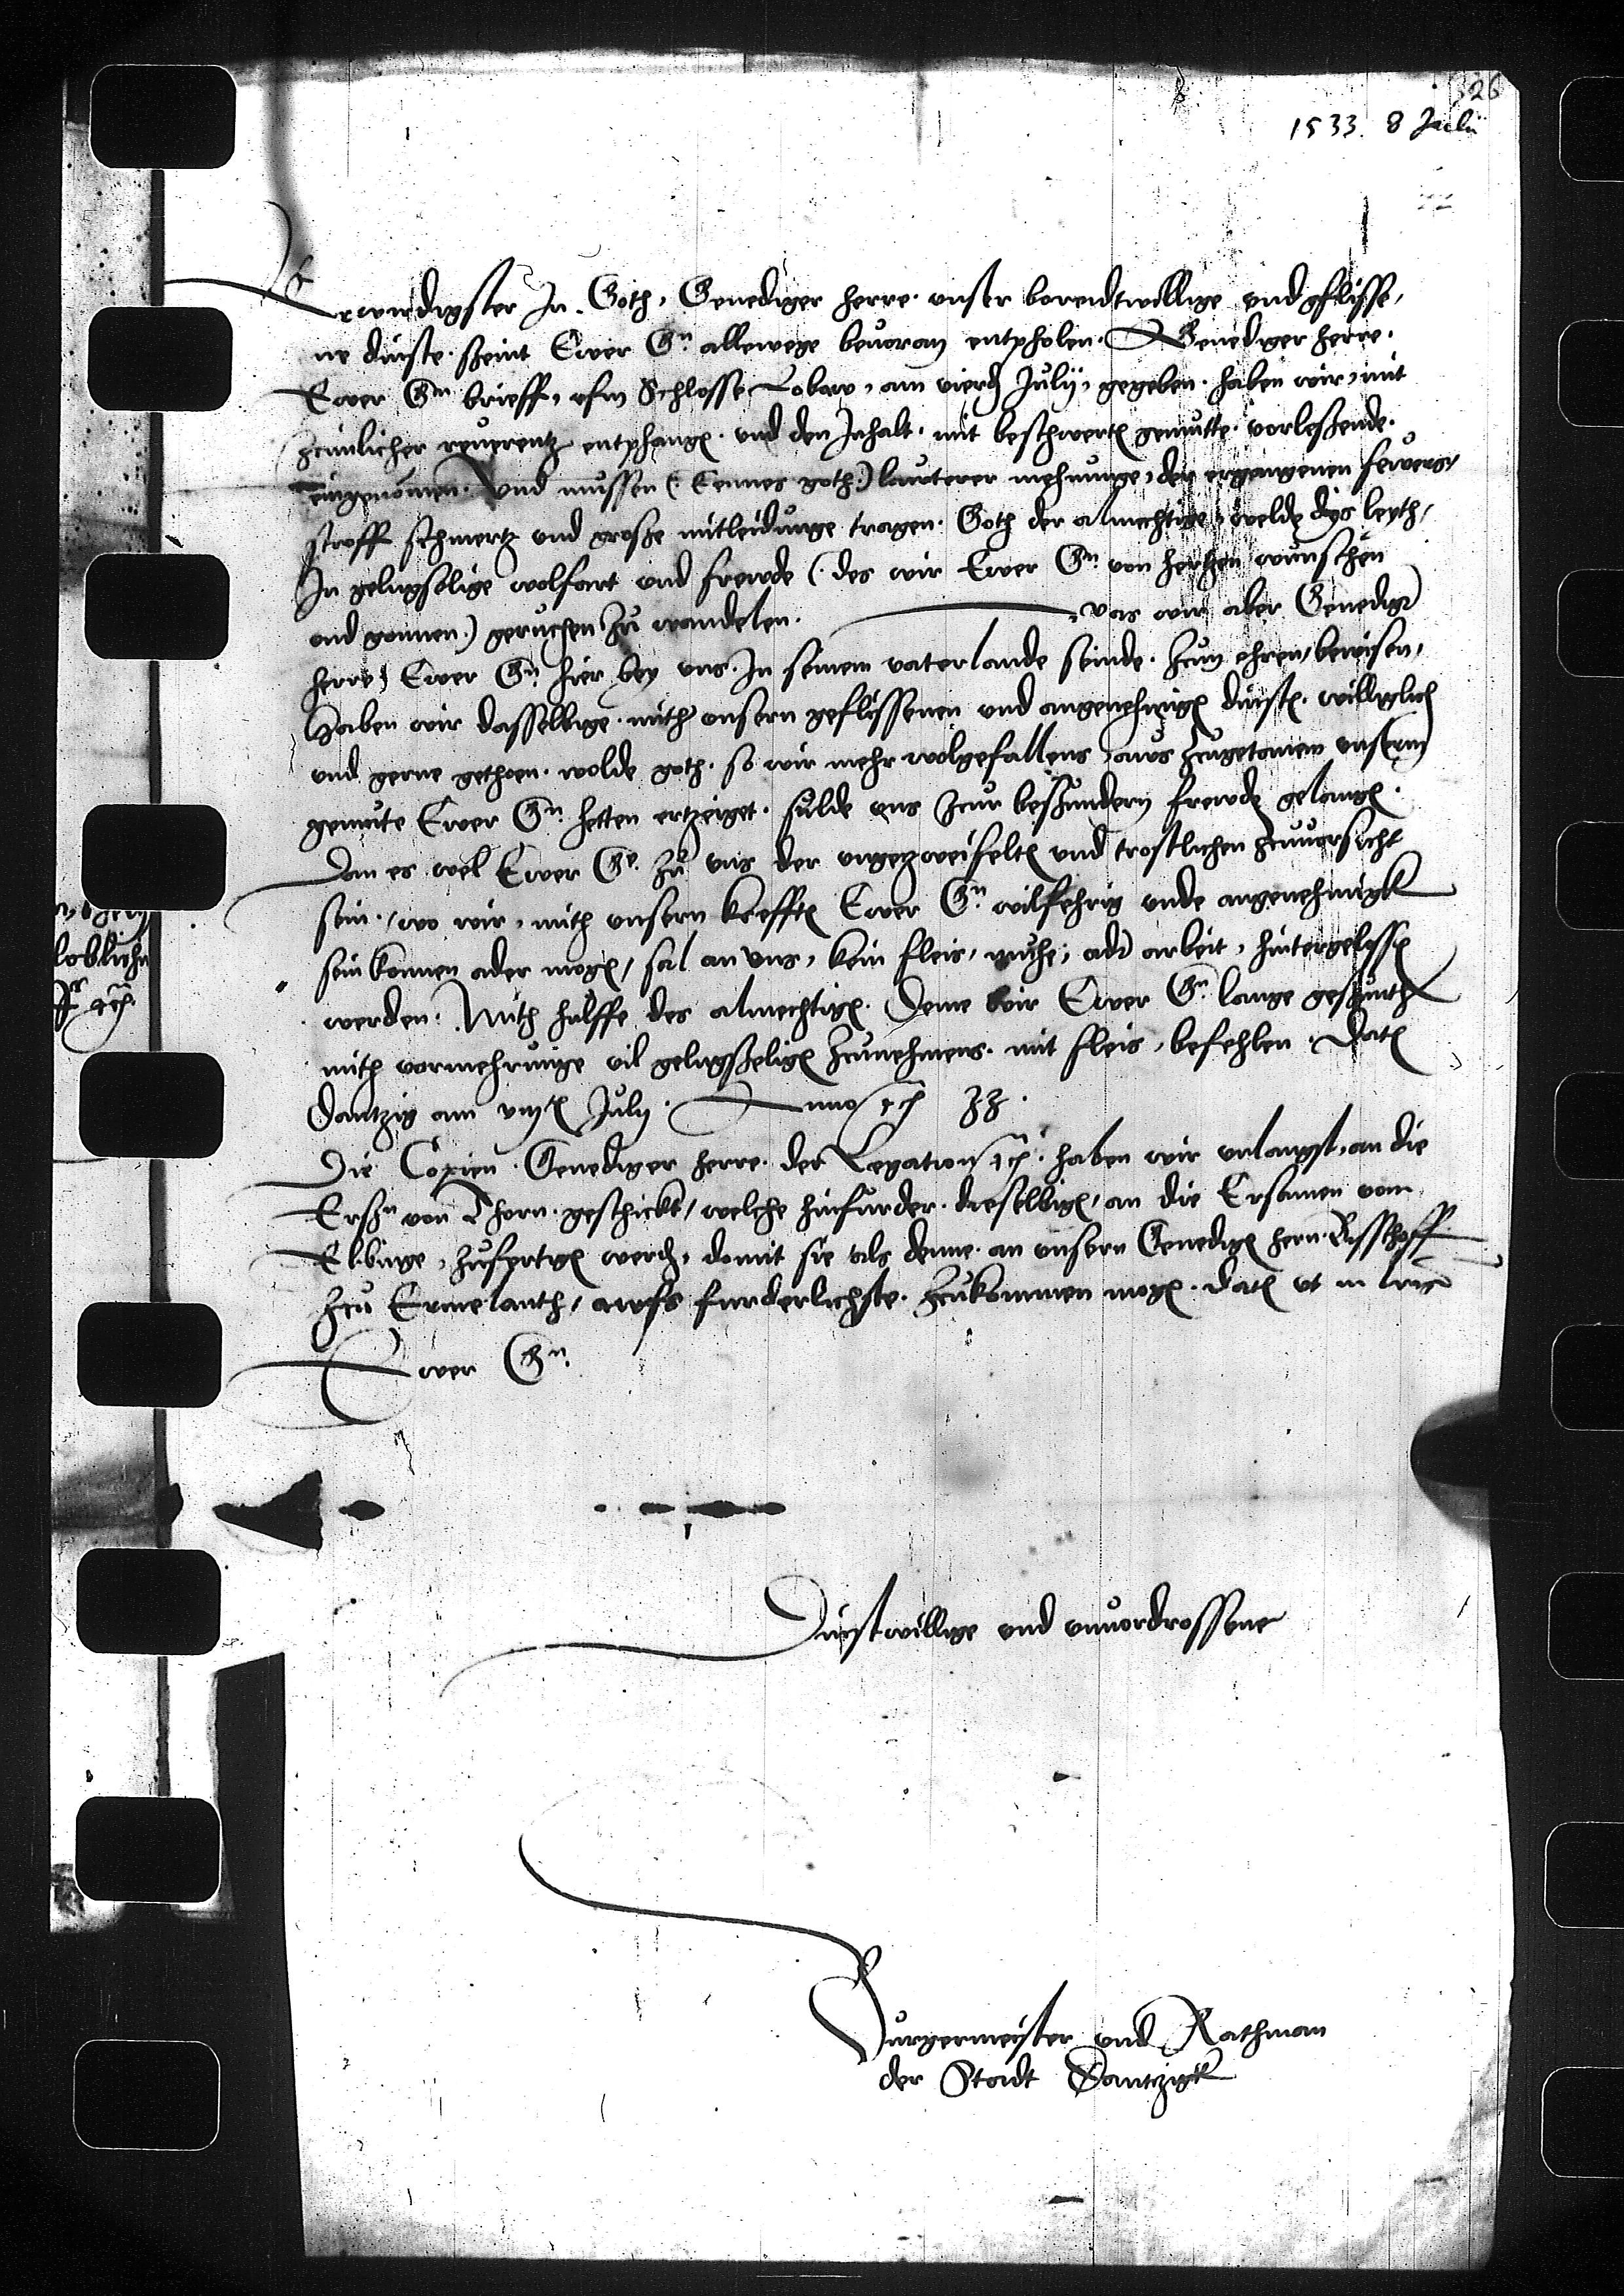 326
1533. 8 Julii
Erwirdigster In Goth, Genediger herre. unser bereidtwillige und gflisse,
ne dinste. seint Ewer Gn. allewege bevoran entpholen. Genediger herre.
Ewer Gn. brieff, ufm Schlosse Lobaw, am vierdn Julij, gegeben. haben wir, mit
zcimlicher reverentz entphangn. und den Inhalt. mit beschwertn gemutte. vorleßende.
eingenomen. Und mussen (: Kennes goth:) lauterer mehnunge, der ergangenen fewers,
stroff schmertz und große mitleidunge tragen. Goth der almechtige, welde dis leyth,
In gelugselige wolfart und frewde (. des wir Ewer Gn. von hertzen wunschen
und gonnen.) geruchen zu wandelen. was wir aber Genediger
herre, Ewer Gn. hier bey uns. In seinem vaterlande seinde. zcun ehren, bewisen,
Haben wir dasselbige. mith unsern geflissenen und angenehmign dinstn. williglich
und gerne gethoen. wolde goth. so wir mehr wolgefallens, aus zcugetanem unserm
gemute Ewer Gn. hetten ertzeiget. sulde uns zcur beßundern frewde gelangn.
Dan es wel Ewer Ge. zu uns der ungezweifeltn und trostlichen zcuvorsicht
sein. wo wir, mith unsern krefftn Ewer Gn. wilfehrig unde angenehmigk
sein konnen ader mogn, sal an uns, kein fleis, muhe, adr arbeit, hintergelossn
werden. Mith hulffe des almechtign. Deme wir Ewer Gn. lange gesunth
mith vormehrunge vil gelugßelign zcunehmens. mit fleis, befehlen. Datn
Dantzig am viijtn Julij. Anno etc 33.
Die Copien. Genediger herre. der Legation etc. haben wir unlangst, an die
Ersn von Thorn. geschickt, welche hinfurder. dieselbign, an die Ersamen vom
Elbinge, zufertign werdn, domit sie als denne. an unsern Genedign hern. Bisschoff
zcu Ermelanth, awfs furderlichste. zcukommen mogn. datn ut in literis
Ewer Gn.
Dinstwillige und unvordrossene
Burgermeister und Rathman
der Stadt Dantzigk